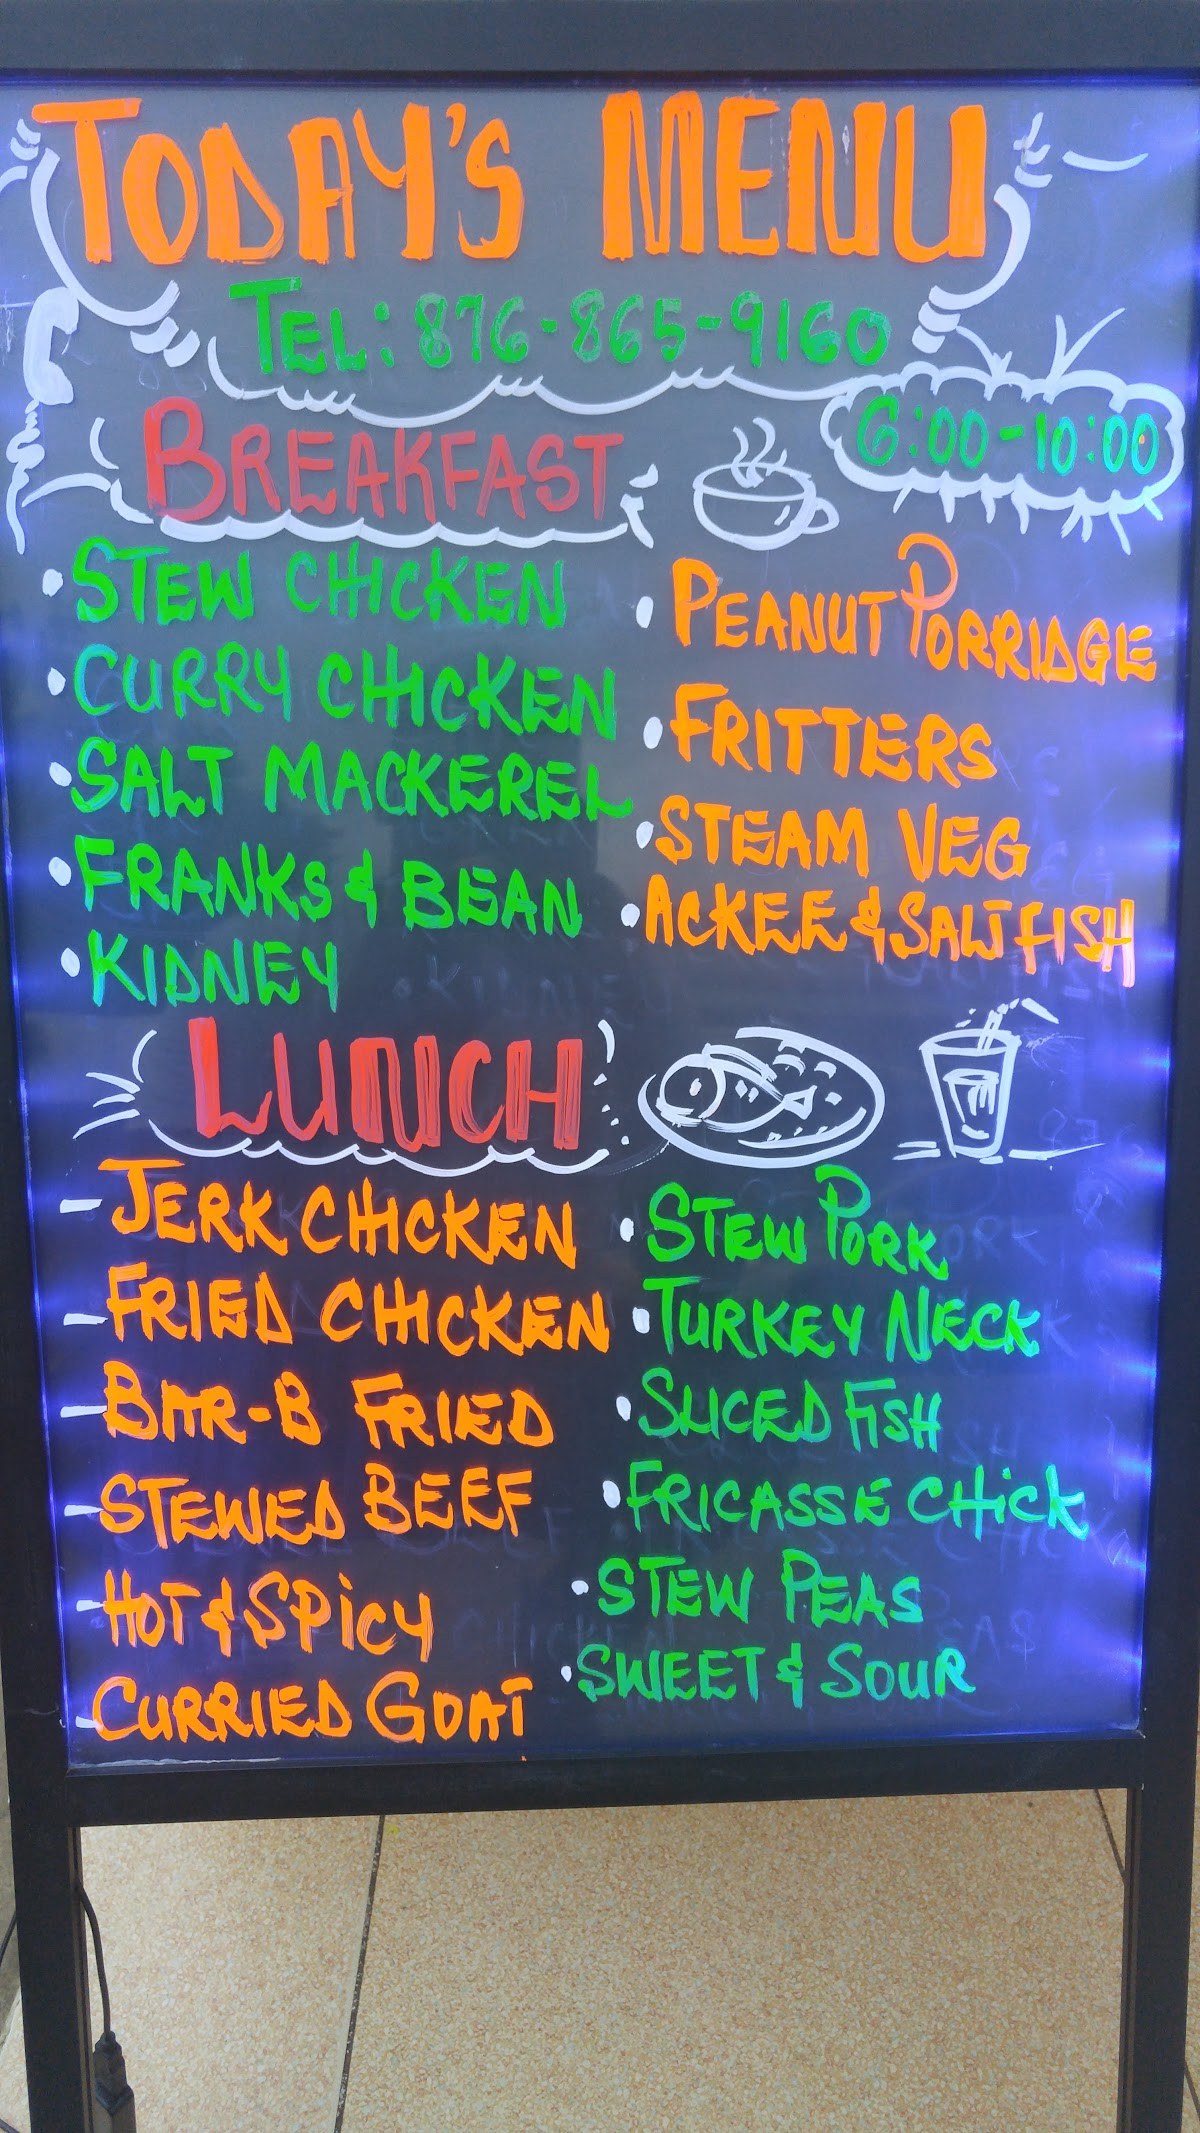 TODAY'S MENU
TEL: 876-865-9160
BREAKFAST
6:00-10:00
• STEW CHICKEN
• CURRY CHICKEN
• SALT MACKEREL
• FRANKS & BEAN
• KIDNEY
• PEANUT PORRIDGE
• FRITTERS
• STEAM VEG
• ACKEE & SALTFISH
LUNCH
- JERK CHICKEN
- FRIED CHICKEN
- BAR-B FRIED
- STEWED BEEF
- HOT & SPICY
- CURRIED GOAT
• STEW PORK
• TURKEY NECK
• SLICED FISH
• FRICASSE CHICK
• STEW PEAS
• SWEET & SOUR